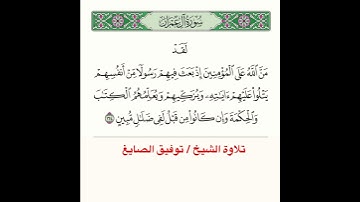 سُورَةُ آلِ عِمْرَانَ
لَقَدْ
مَنَّ ٱللَّهُ عَلَى ٱلْمُؤْمِنِينَ إِذْ بَعَثَ فِيهِمْ رَسُولًا مِّنْ أَنفُسِهِمْ
يَتْلُوا۟ عَلَيْهِمْ ءَايَٰتِهِۦ وَيُزَكِّيهِمْ وَيُعَلِّمُهُمُ ٱلْكِتَٰبَ
وَٱلْحِكْمَةَ وَإِن كَانُوا۟ مِن قَبْلُ لَفِى ضَلَٰلٍ مُّبِينٍ ١٦٤
تلاوة الشيخ / توفيق الصايغ